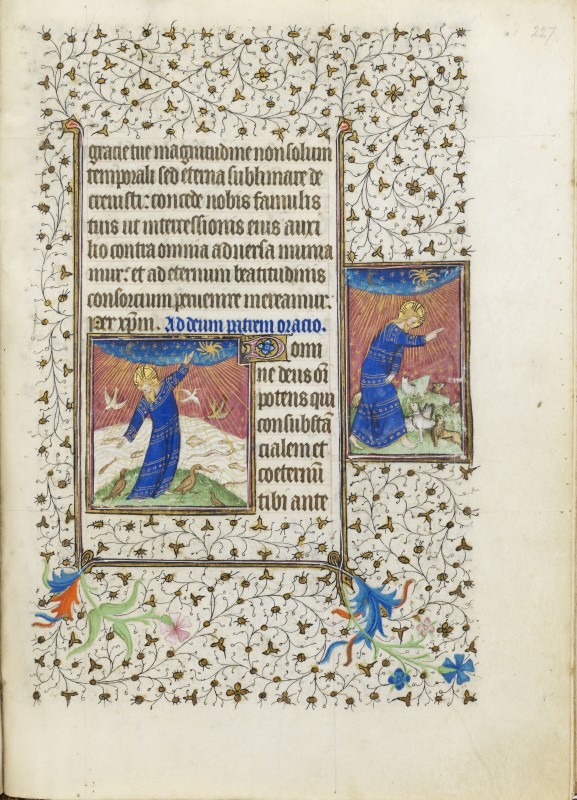 227
gracie tue magnitudine non solum
temporali sed eterna sublimare de
crevisti: concede nobis famulis
tuis ut intercessionis eius auxi
lio contra omnia adversa munia
mur: et ad eternum beatitudinis
consorcium pervenire mereamur.
Per xp̄m. Ad deum patrem oracio.
Domi
ne deus om̄
potens qui
consubstā
cialem et
coeternū
tibi ante